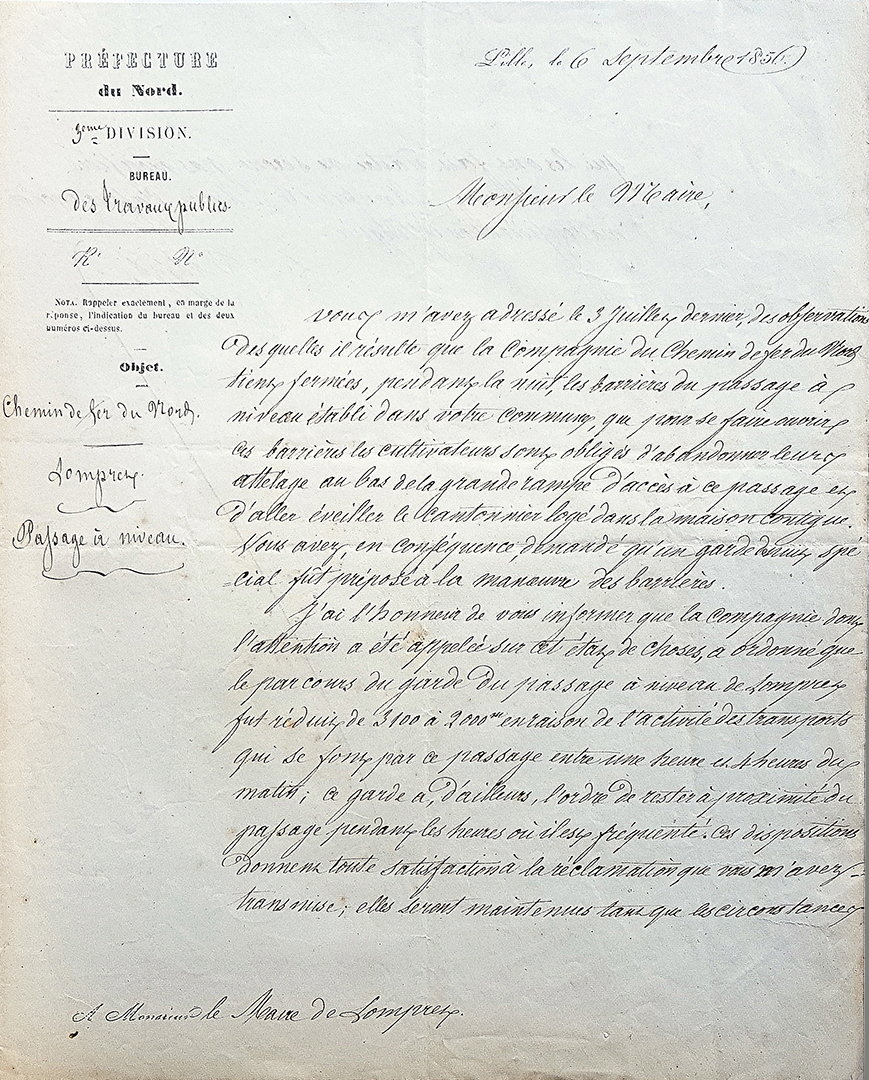 PRÉFECTURE
du Nord.
3ème DIVISION.
BUREAU.
des Travaux publics.
Rt No
NOTA. Rappeler exactement, en marge de la
réponse, l'indication du bureau et des deux
numéros ci-dessus.
Objet.
Chemin de fer du Nord.
Lompret.
Passage à niveau.
Lille, le 6 Septembre 1856.
Monsieur le Maire,
Vous m'avez adressé le 3 Juillet dernier, des observations
desquelles il résulte que la Compagnie du Chemin de fer du Nord
tient fermées, pendant la nuit, les barrières du passage à
niveau établi dans votre commune, que pour se faire ouvrir
ces barrières les cultivateurs sont obligés d'abandonner leurs
attelage au bas de la grande rampe d'accès à ce passage et
d'aller éveiller le cantonnier logé dans la maison contigue.
Vous avez, en conséquence, demandé qu'un garde de nuit spé
-cial fût préposé à la manœuvre des barrières.
J'ai l'honneur de vous informer que la compagnie dont
l'attention a été appelée sur cet état de choses, a ordonné que
le parcours du garde du passage à niveau de Lompret
fut réduit de 3100 à 2000m en raison de l'activité des transports
qui se font par ce passage entre une heure et 4 heures du
matin; ce garde a, d'ailleurs, l'ordre de rester à proximité du
passage pendant les heures où il est fréquenté. Ces dispositions
donnent toute satisfaction à la réclamation que vous m'avez
transmise; elles seront maintenues tant que les circonstances
A Monsieur le Maire de Lompret.